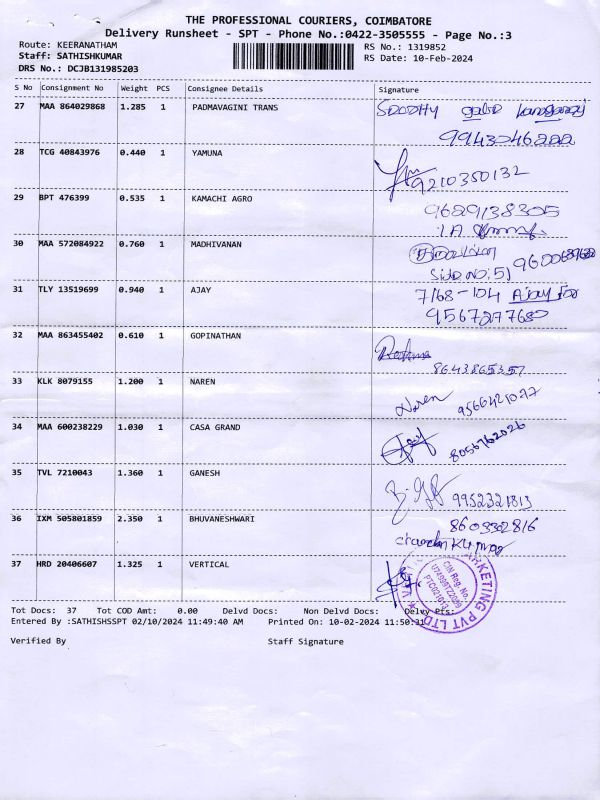 THE PROFESSIONAL COURIERS, COIMBATORE
Delivery Runsheet - SPT - Phone No.:0422-3505555 - Page No.:3
Route: KEERANATHAM
Staff: SATHISHKUMAR
DRS No.: DCJB131985203
RS No.: 1319852
RS Date: 10-Feb-2024
S No Consignment No Weight PCS Consignee Details Signature
27 MAA 864029868 1.285 1 PADMAVAGINI TRANS
9943046222
28 TCG 40843976 0.440 1 YAMUNA
9210350132
29 BPT 476399 0.535 1 KAMACHI AGRO
9629138305
30 MAA 572084922 0.760 1 MADHIVANAN
Side NO: 51
31 TLY 13519699 0.940 1 AJAY
7/68-104 Ajay
9567277680
32 MAA 863455402 0.610 1 GOPINATHAN
8643865357
33 KLK 8079155 1.200 1 NAREN
Naren 9566421077
34 MAA 600238229 1.030 1 CASA GRAND
8056762026
35 TVL 7210043 1.360 1 GANESH
9952321813
36 IXM 505801859 2.350 1 BHUVANESHWARI
8603302816
Chandan Kumar
37 HRD 20406607 1.325 1 VERTICAL
MARKETING PVT LTD
CIN Reg. No.
Tot Docs: 37 Tot COD Amt: 0.00 Delvd Docs: Non Delvd Docs: Delvy Pts:
Entered By :SATHISHSSPT 02/10/2024 11:49:40 AM Printed On: 10-02-2024 11:50:31
Verified By Staff Signature